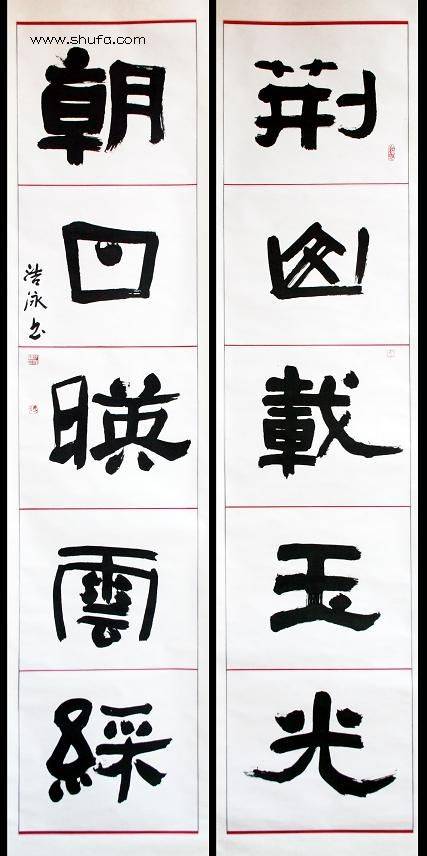 荊山載玉光
朝日暎雲綵
浩泳书
www.shufa.com